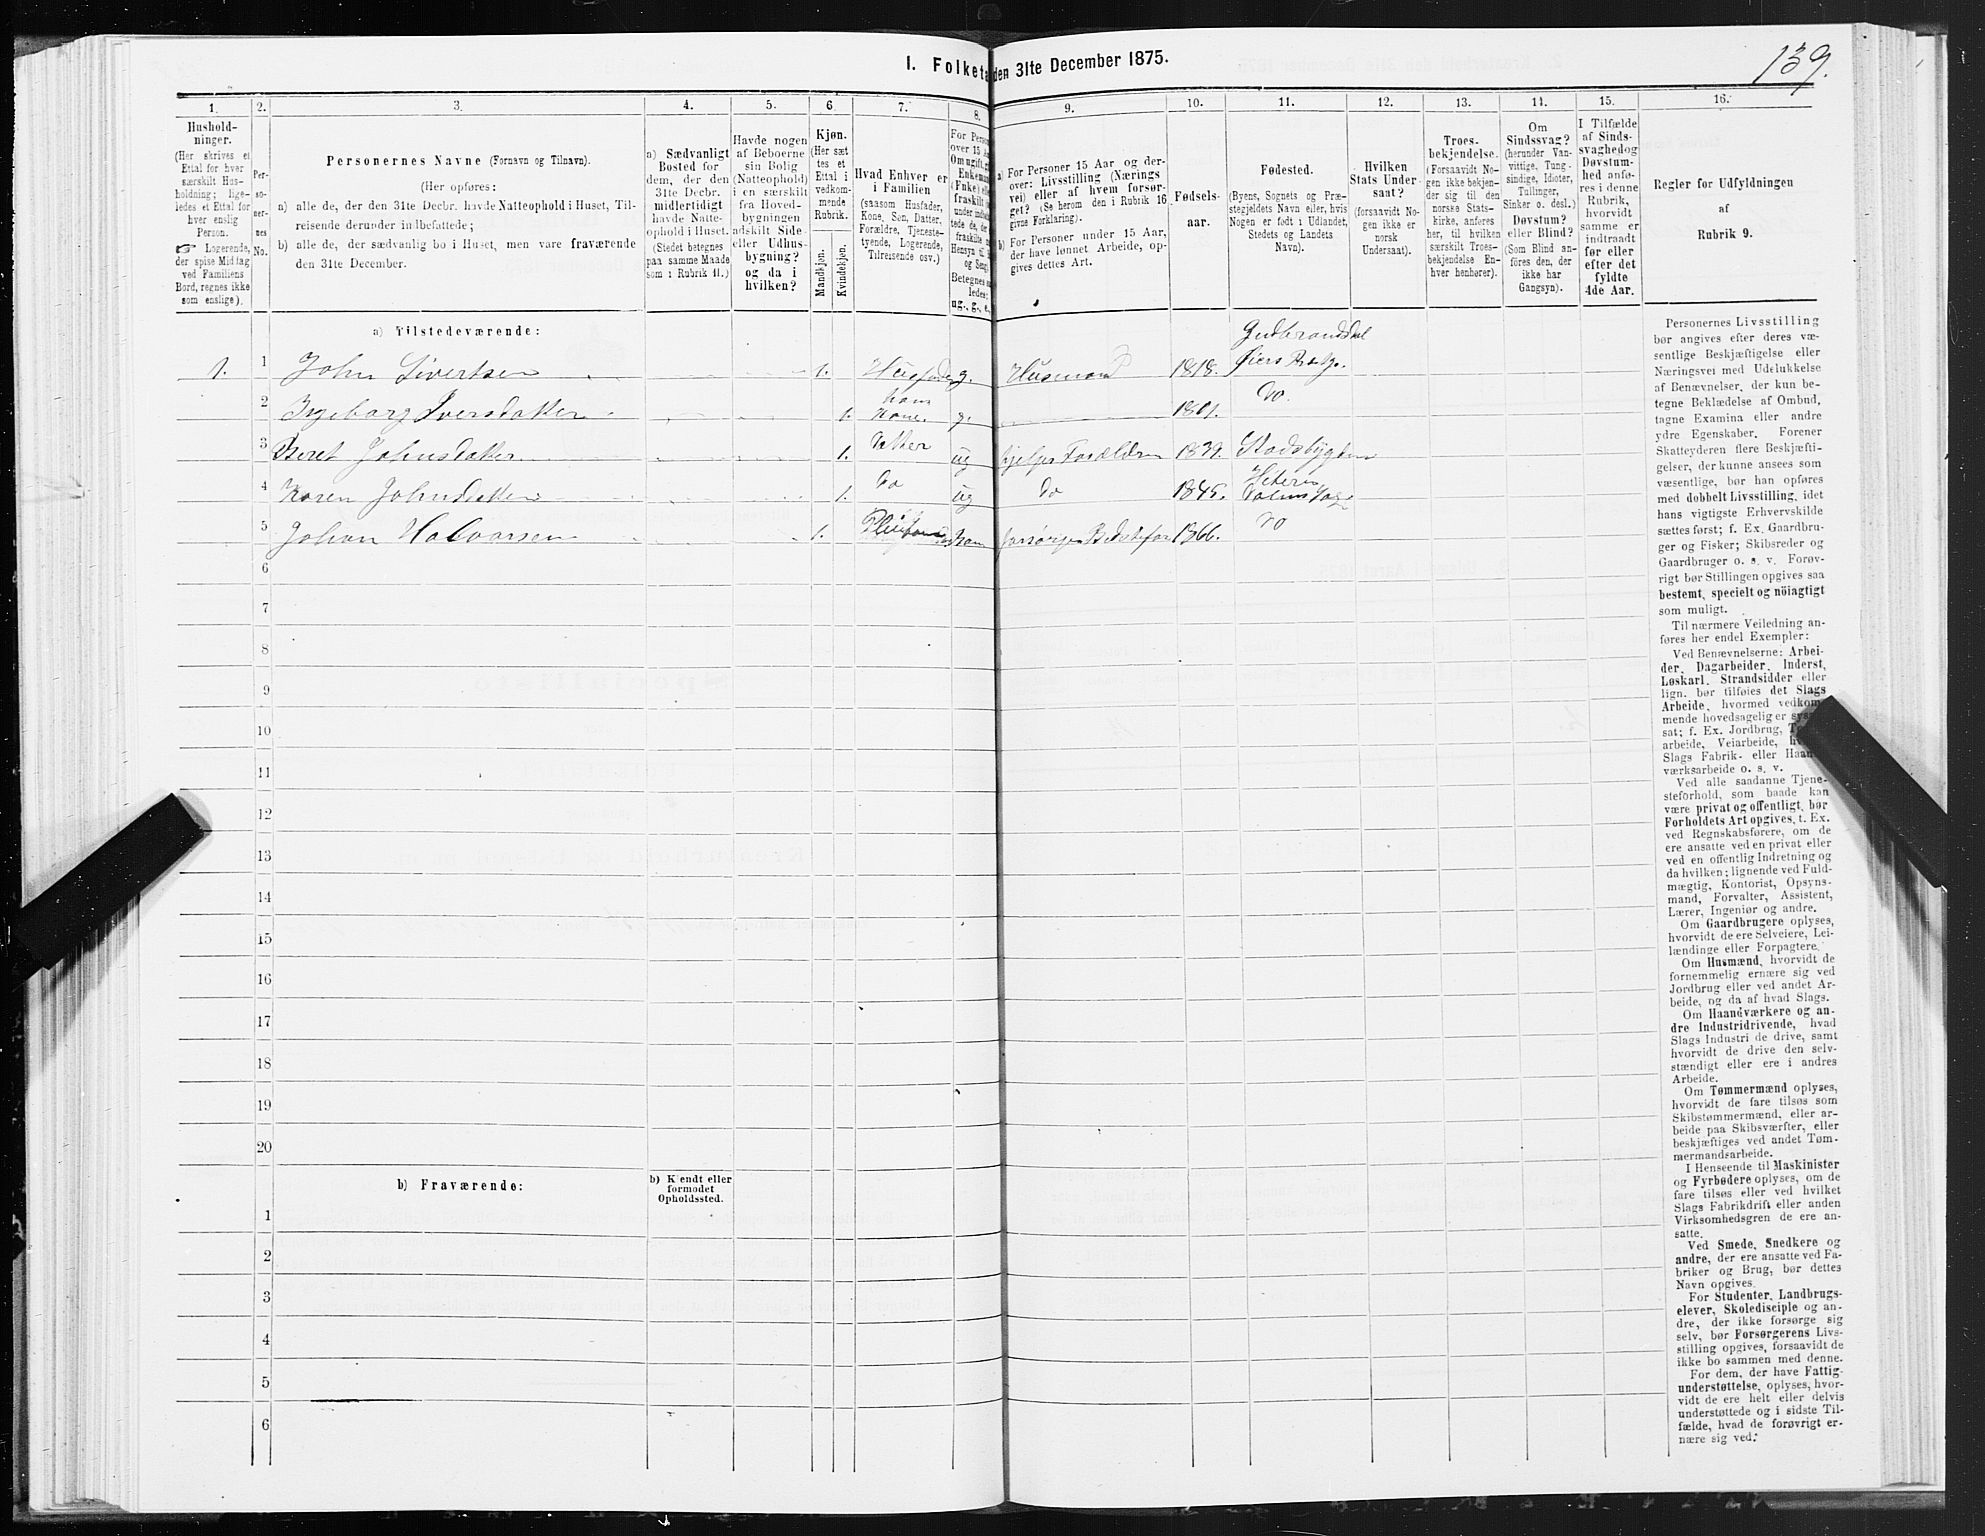 139.
1. Folketæ den 31te December 1875.
1. 2. 3. 4. 5. 6. 7. 8. 9. 10. 11. 12. 13. 14. 15. 16.
Hushold-
ninger.
(Her skrives et
Ettal for hver
særskilt Hus-
holdning; lige-
ledes et Ettal for
hver enslig
Person.
☞ Logerende,
der spise Middag
ved Familiens
Bord, regnes ikke
som enslige).
Per-
so-
ner-
nes
No.
Personernes Navne (Fornavn og Tilnavn).
(Her opføres:
a) alle de, der den 31te Decbr. havde Natteophold i Huset, Til-
reisende derunder indbefattede;
b) alle de, der sædvanlig bo i Huset, men vare fraværende
den 31te December.
a) Sædvanligt
Bosted for
dem, der den
31te Decbr.
midlertidigt
havde Natte-
ophold i Huset.
(Stedet betegnes
paa samme Maade
som i Rubrik 11.)
Havde nogen
af Beboerne
sin Bolig
(Natteophold)
i en særskilt
fra Hoved-
bygningen
adskilt Side-
eller Udhus-
bygning?
og da i
hvilken?
Kjøn.
(Her sæt
tes et
Ettal i
vedkom-
mende
Rubrik.
Mandkjøn.
Kvindekjøn.
Hvad Enhver er
i Familien
(saasom Husfader,
Kone, Søn, Datter,
Forældre, Tjeneste-
tyende, Logerende,
Tilreisende osv.)
For Person
over 15 Aa
Om ugift, g
Enkeman
(Enke) elle
fraskilt
ledes:
ug., g., e.
a) For Personer 15 Aar og der-
over: Livsstilling (Nærings
vei) eller af hvem forsør-
get? (Se herom den i Rubrik 16
givne Forklaring).
b) For Personer under 15 Aar,
der have lønnet Arbeide, op-
gives dettes Art.
Fødsels-
aar.
Fødested.
(Byens, Sognets og Præ-
stegjeldets Navn eller, hvis
Nogen er født i Udlandet,
Stedets og Landets
Navn).
Hvilken
Stats Under-
saat?
(forsaavidt No-
gen ikke er
norsk
Undersaat).
Troes-
bekjendelse.
(Forsaavidt No-
gen ikke bekjen-
der sig til den
norske Stats-
kirke, anføres
her, til hvilken
særskilt Troes-
bekjendelse En-
hver henhører).
Om
Sindssvag?
(herunder Van-
vittige, Tung-
sindige, Idioter,
Tullinger,
Sinker o. desl.)
Døvstum?
eller Blind?
(Som Blind an-
føres den, der
ikke har
Gangsyn).
I Tilfælde
af Sinds-
svaghed og
Døvstum-
hed anfø-
res i denne
Rubrik,
hvorvidt
samme er
indtraadt
før eller
efter det
fyldte
4de Aar.
Regler for Udfyldningen
af
Rubrik 9.
a) Tilstedeværende:
Gudbrandsdal
1. 1 John Sivertsen 1. Husfader g. Husmand 1818. Øiers Prstgj.
2 Ingeborg Iversdatter 1. hans Kone. g. 1801. Do.
3 Beret Johnsdatter 1. Datter ug hjelper Forældrene 1839. Stadsbygden
4 Karen Johnsdatter 1. Do ug Do 1845.
5 Johan Halvorsen 1. forsørges Bedstefar 1866. Do
6
7
8
9
10
11
12
13
14
15
16
17
18
19
20
b) Fraværende:
b) Kjendt eller
formodet
Opholdssted.
1
2
3
4
5
6
Personernes Livsstilling
bør angives efter deres væ-
sentlige Beskjæftigelse eller
Næringsvei med Udelukkelse
af Benævnelser, der kun be-
tegne Beklædelse af Ombud,
tagne Examina eller andre
ydre Egenskaber. Forener
Skatteyderen flere Beskjæfti-
gelser, der kunne ansees som
væsentlige, bør han opføres
med dobbelt Livsstilling, idet
hans vigtigste Erhvervskilde
sættes først; f. Ex. Gaardbru-
ger og Fisker; Skibsreder og
Gaardbruger o. s. v. Forøv-
rigt bør Stillingen opgives saa
bestemt, specielt og nöiagtigt
som muligt.
Til nærmere Veiledning an-
føres her endel Exempler:
Ved Benævnelserne: Arbei-
der, Dagarbeider, Inderst,
Løskarl, Strandsidder eller
lign. bør tilføies det Slags
Arbeide, hvormed vedkom-
mende hovedsagelig er syssel-
sat; f. Ex. Jordbrug,
arbeide, Veiarbeide,
Slags Fabrik- eller Haand-
værksarbeide o. s. v.
Ved alle saadanne Tjene-
steforhold, som baade kan
være privat og offentligt, bør
Forholdets Art opgives, t. Ex.
ved Regnskabsførere, om de
ere ansatte ved en privat eller
ved en offentlig Indretning og
da hvilken; lignende ved Fuld-
mægtig, Kontorist, Opsyns-
mand, Forvalter, Assistent,
Lærer, Ingeniør og andre.
Om Gaardbrugere oplyses,
hvorvidt de ere Selveiere, Lei-
lændinge eller Forpagtere.
Om Husmænd, hvorvidt de
fornemmelig ernære sig ved
Jordbrug eller ved andet Ar-
beide, og da af hvad Slags.
Om Haandværkere og an-
dre Industridrivende, hvad
Slags Industri de drive, samt
hvorvidt de drive den selv-
stændigt eller ere i andres
Arbeide.
Om Tømmermænd oplyses,
hvorvidt de fare tilsøs som
Skibstømmermænd, eller ar-
beide paa Skibsværfter, eller
beskjæftiges ved andet Tøm-
mermandsarbeide.
I Henseende til Maskinister
og Fyrbødere oplyses, om de
fare tilsøs eller ved hvilket
Slags Fabrikdrift eller anden
Virksomhedsgren de ere an-
satte.
Ved Smede, Snedkere og
andre, der ere ansatte ved Fa-
briker og Brug, bør dettes
Navn opgives.
For Studenter, Landbrugs-
elever, Skoledisciple og an-
dre, der ikke forsørge sig
selv, bør Forsørgerens Livs-
stilling opgives, forsaavidt de
ikke bo sammen med denne.
For dem, der have Fattig-
understøttelse, oplyses, hvor-
vidt de ere helt eller delvis
understøttede og i sidste Til-
fælde, hvad de forøvrigt er-
nære sig ved.